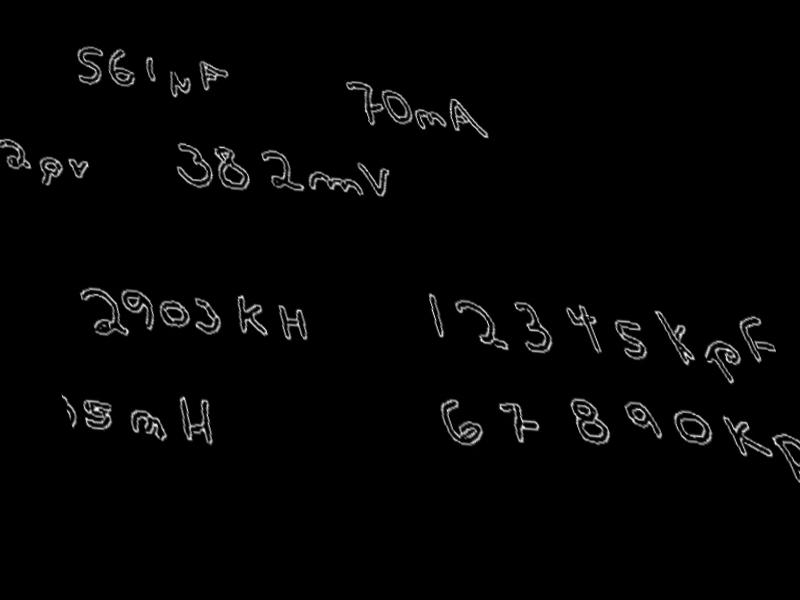 561µA
70mA
2pv
382mV
2903KH
12345KpF
15mH
67890Kp